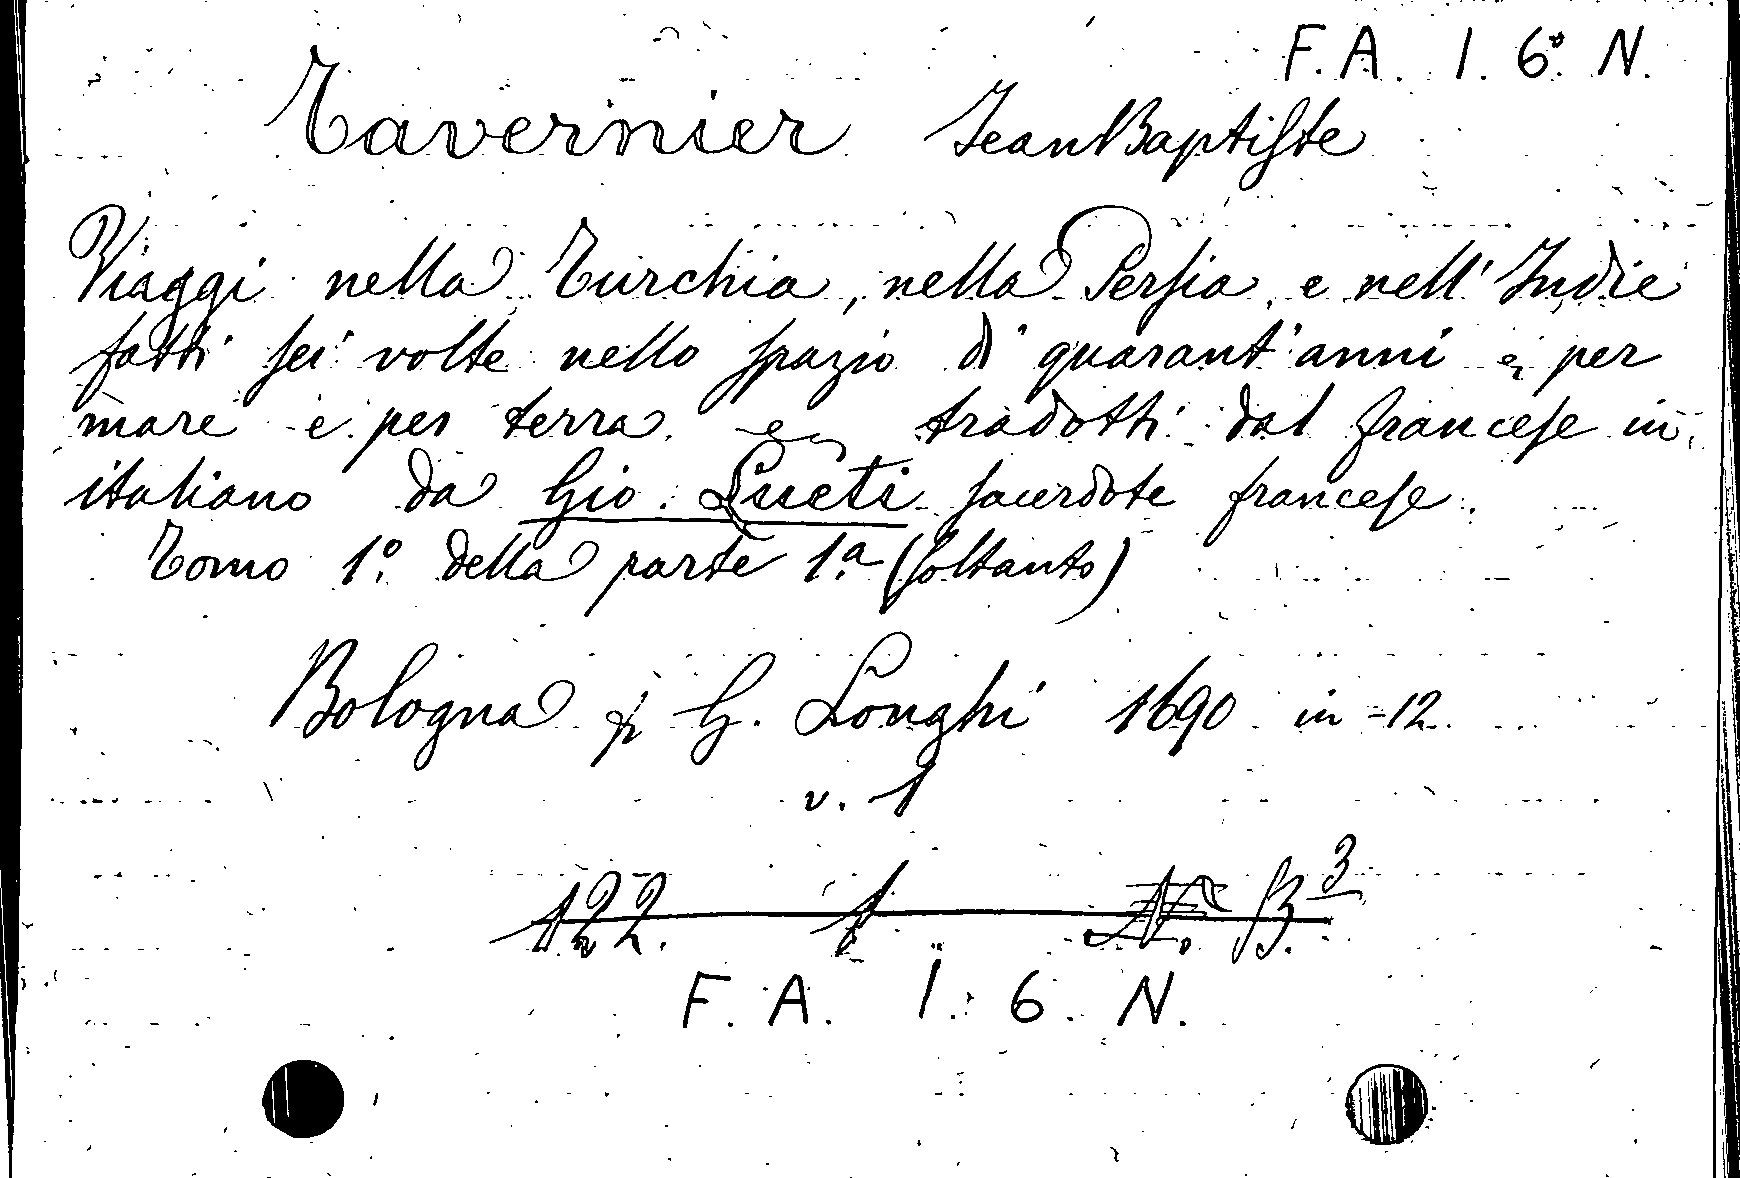 F. A. I. 6° N.
Tavernier Jean Baptiste
Viaggi nella Turchia, nella Persia, e nell' Indie
fatti sei volte nello spazio di quarant'anni e per
mare e per terra. e tradotti dal francese in
italiano da Gio. Lueti sacerdote francese.
Tomo 1.° della parte 1.a (soltanto)
Bologna p G. Longhi 1690 in-12
v. 1
122. 1 B.3
F. A. I. 6. N.